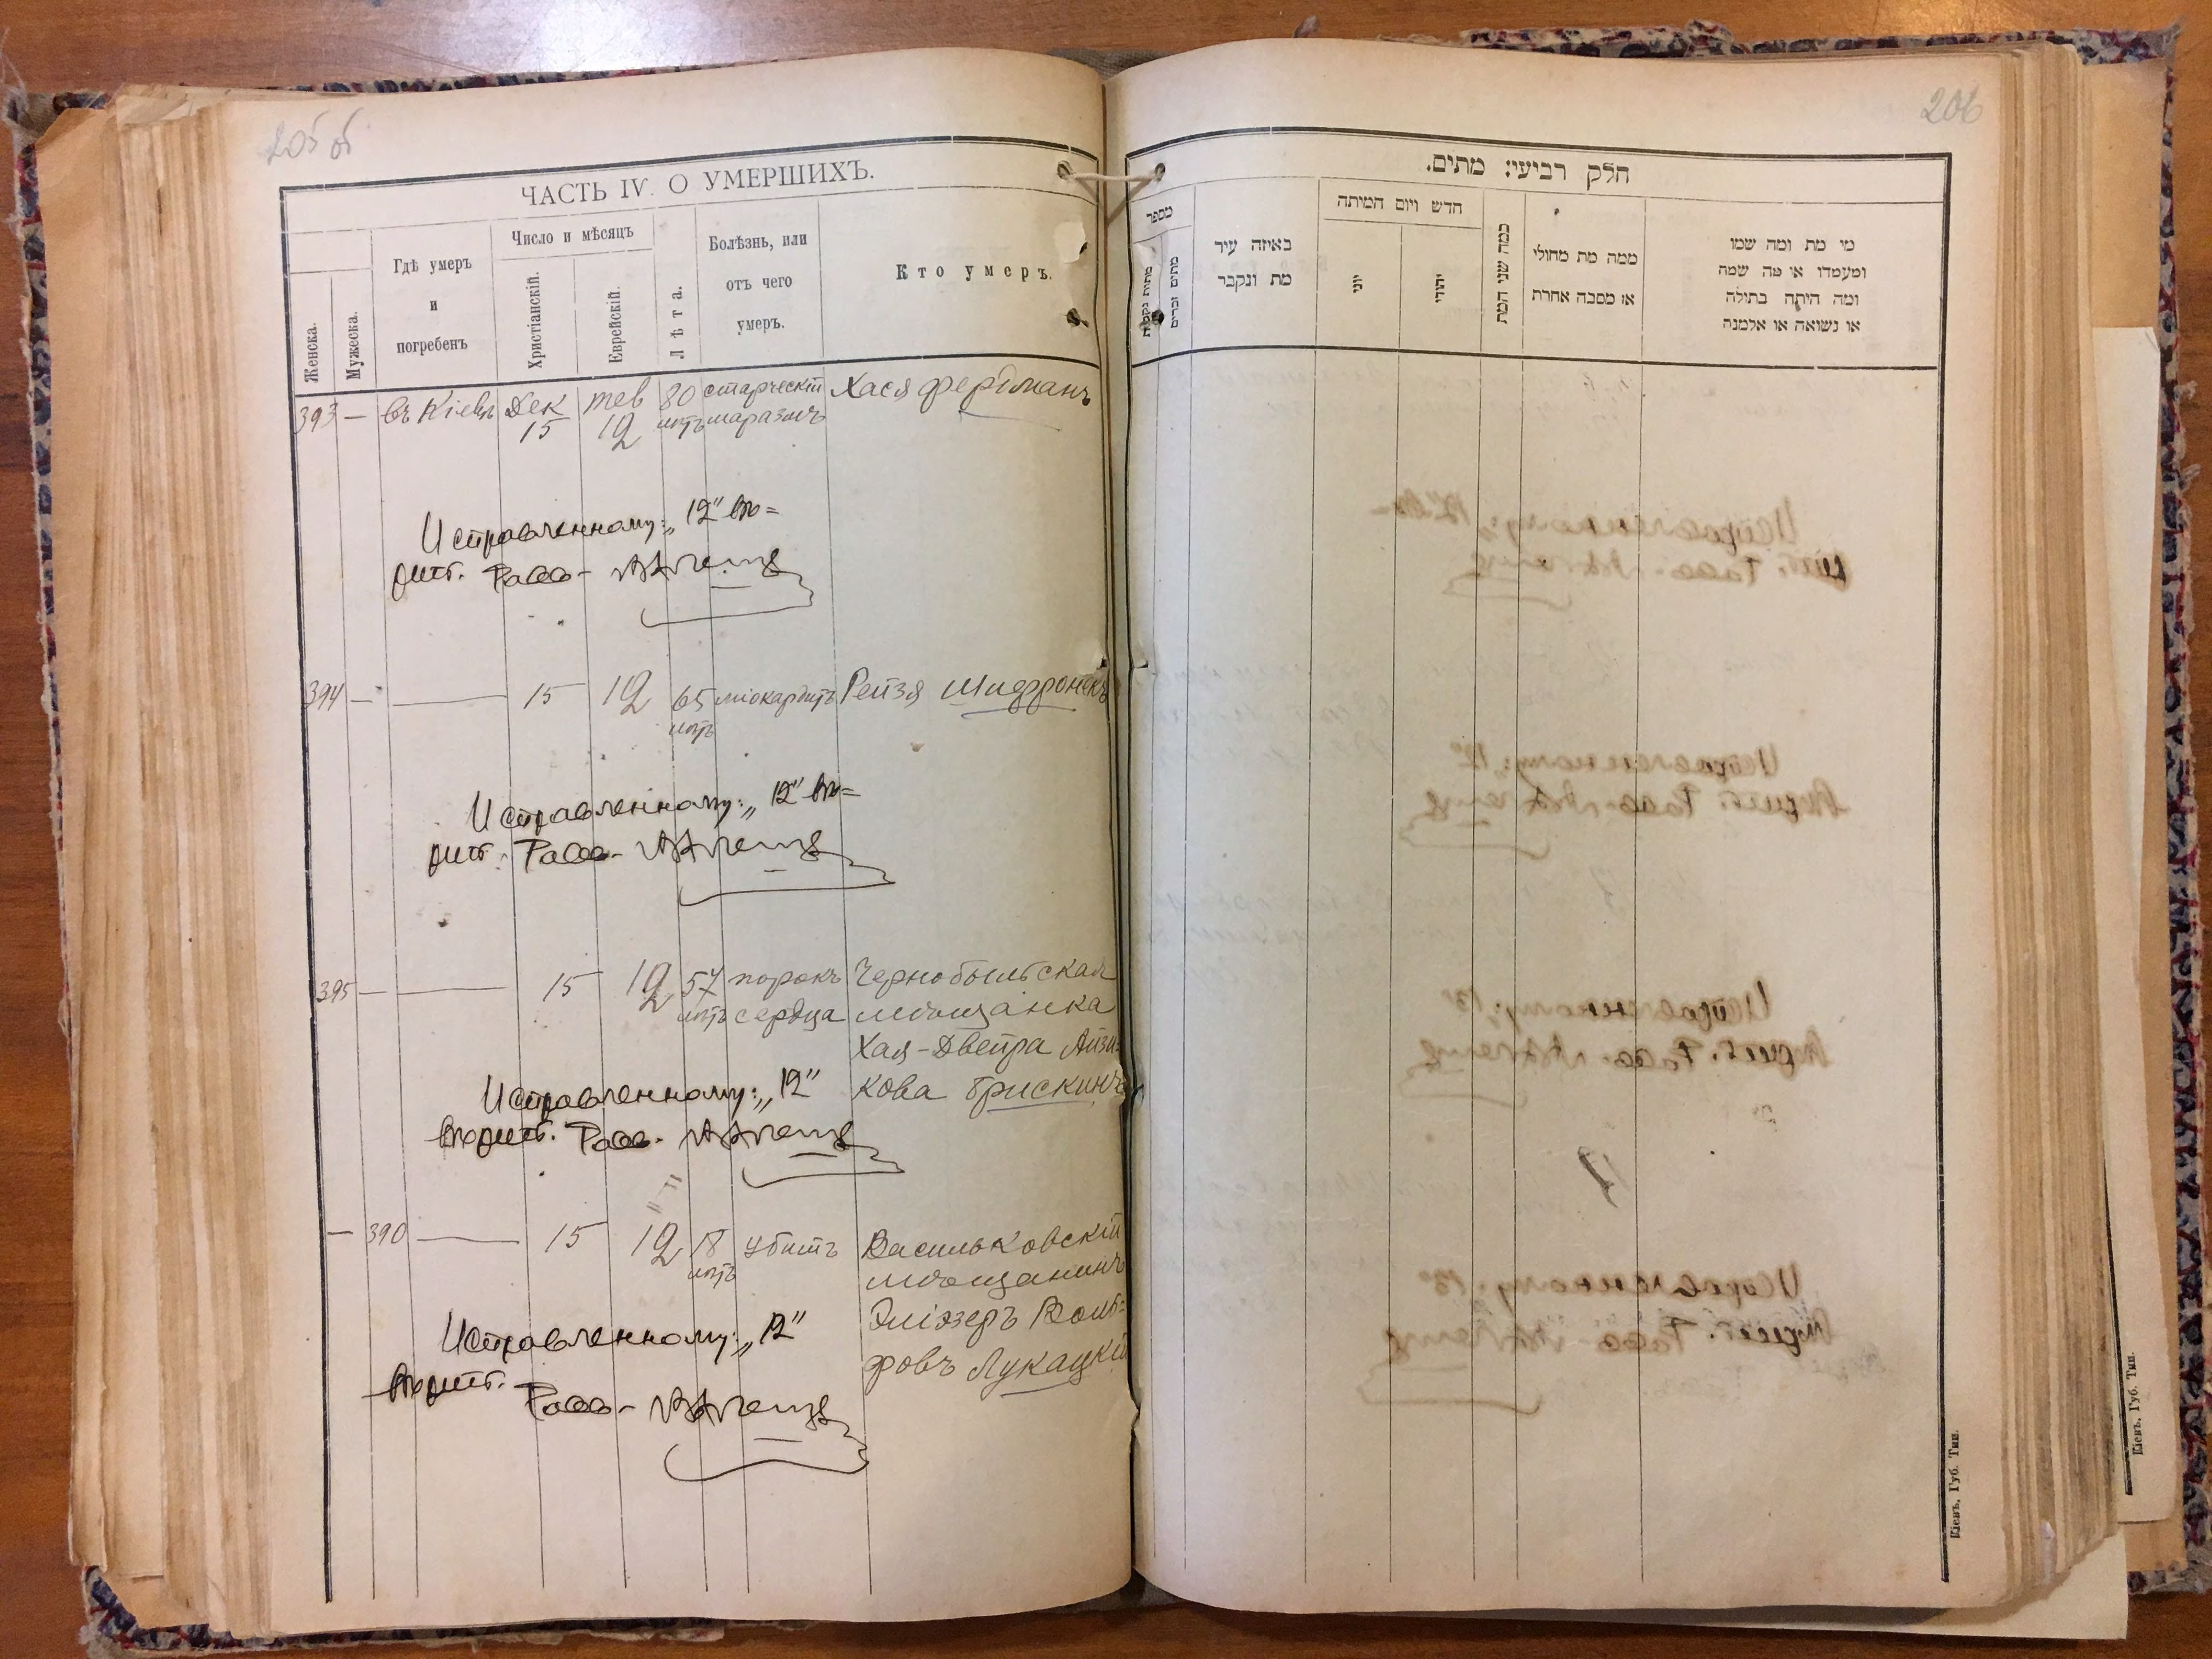 205 об
ЧАСТЬ IV. О УМЕРШИХЪ.
Женска.
Мужеска.
Гдѣ умеръ
и
погребенъ
Число и мѣсяцъ
Христіанскій.
Еврейскій.
Лѣта.
Болѣзнь, или
отъ чего
умеръ.
Кто умеръ.
393 — въ Кіевѣ Дек 15 тев 12 80 лѣтъ старческій маразмъ Хася Фердманъ
Исправленному: „12" вѣ=
рить. Равв-
394 — — 15 12 65 лѣтъ міокардитъ Рейзя Шифронекъ
Исправленному: „12" вѣ=
рить. Равв-
395 — — 15 12 57 лѣтъ порокъ сердца Чернобыльская
мѣщанка
Хая-Двейра Айзи=
кова Брискинъ
Исправленному: „12"
вѣрить. Равв-
— 390 — 15 12 18 лѣтъ убитъ Васильковскій
мѣщанинъ
Эліэзеръ Воль=
фовъ Лукацкій
Исправленному: „12"
вѣрить.
Равв-
206
חלק רביעי: מתים.
מספר
מתות נקבות
מתים זכרים
באיזה עיר
מת ונקבר
חדש ויום המיתה
יוני
יהודי
כמה שני המת
ממה מת מחולי
או מסבה אחרת
מי מת ומה שמו
ומעמדו או מה שמה
ומה היתה בתילה
או נשואה או אלמנה
Кіевъ, Губ. Тип.
Кіевъ, Губ. Тип.